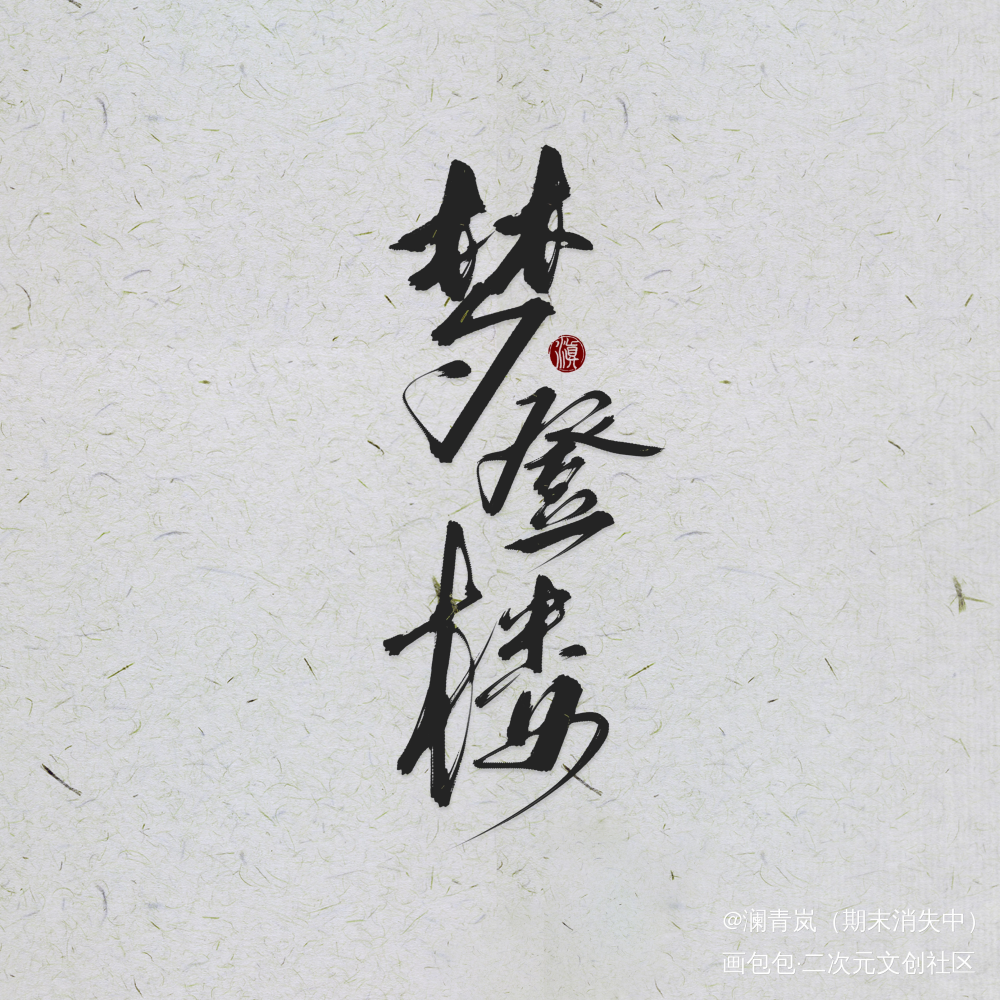 梦登楼
@澜青岚（期末消失中）
画包包·二次元文创社区